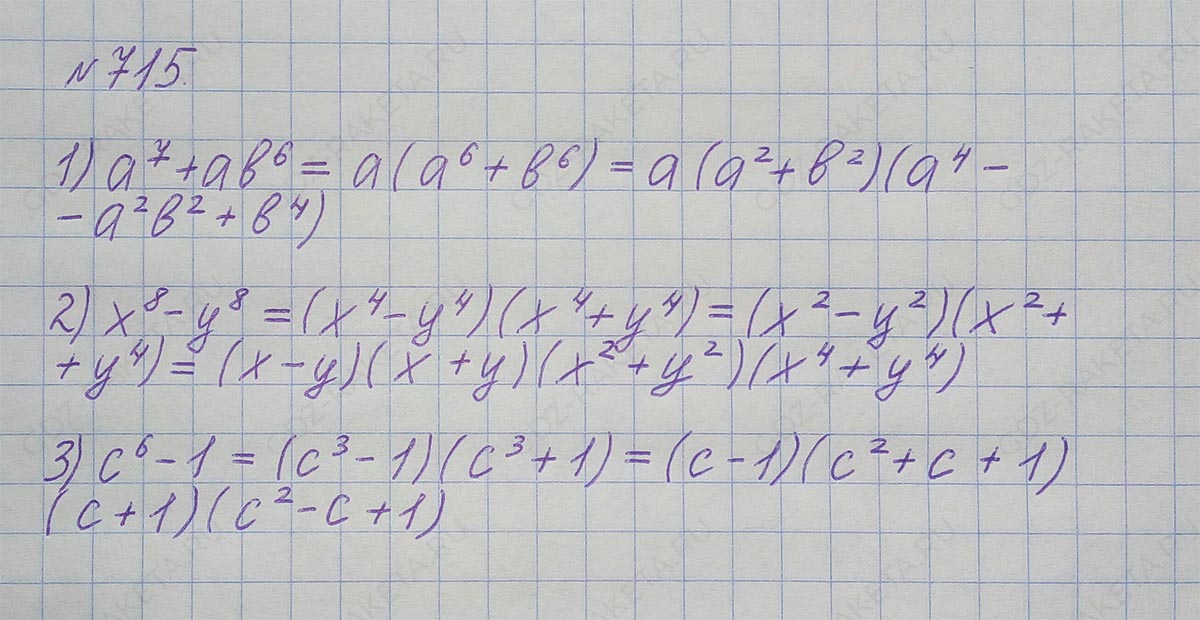 №715.
1) a⁷ + ab⁶ = a(a⁶ + b⁶) = a(a² + b²)(a⁴ -
- a²b² + b⁴)
2) x⁸ - y⁸ = (x⁴ - y⁴)(x⁴ + y⁴) = (x² - y²)(x² +
+ y⁴) = (x - y)(x + y)(x² + y²)(x⁴ + y⁴)
3) c⁶ - 1 = (c³ - 1)(c³ + 1) = (c - 1)(c² + c + 1)
(c + 1)(c² - c + 1)